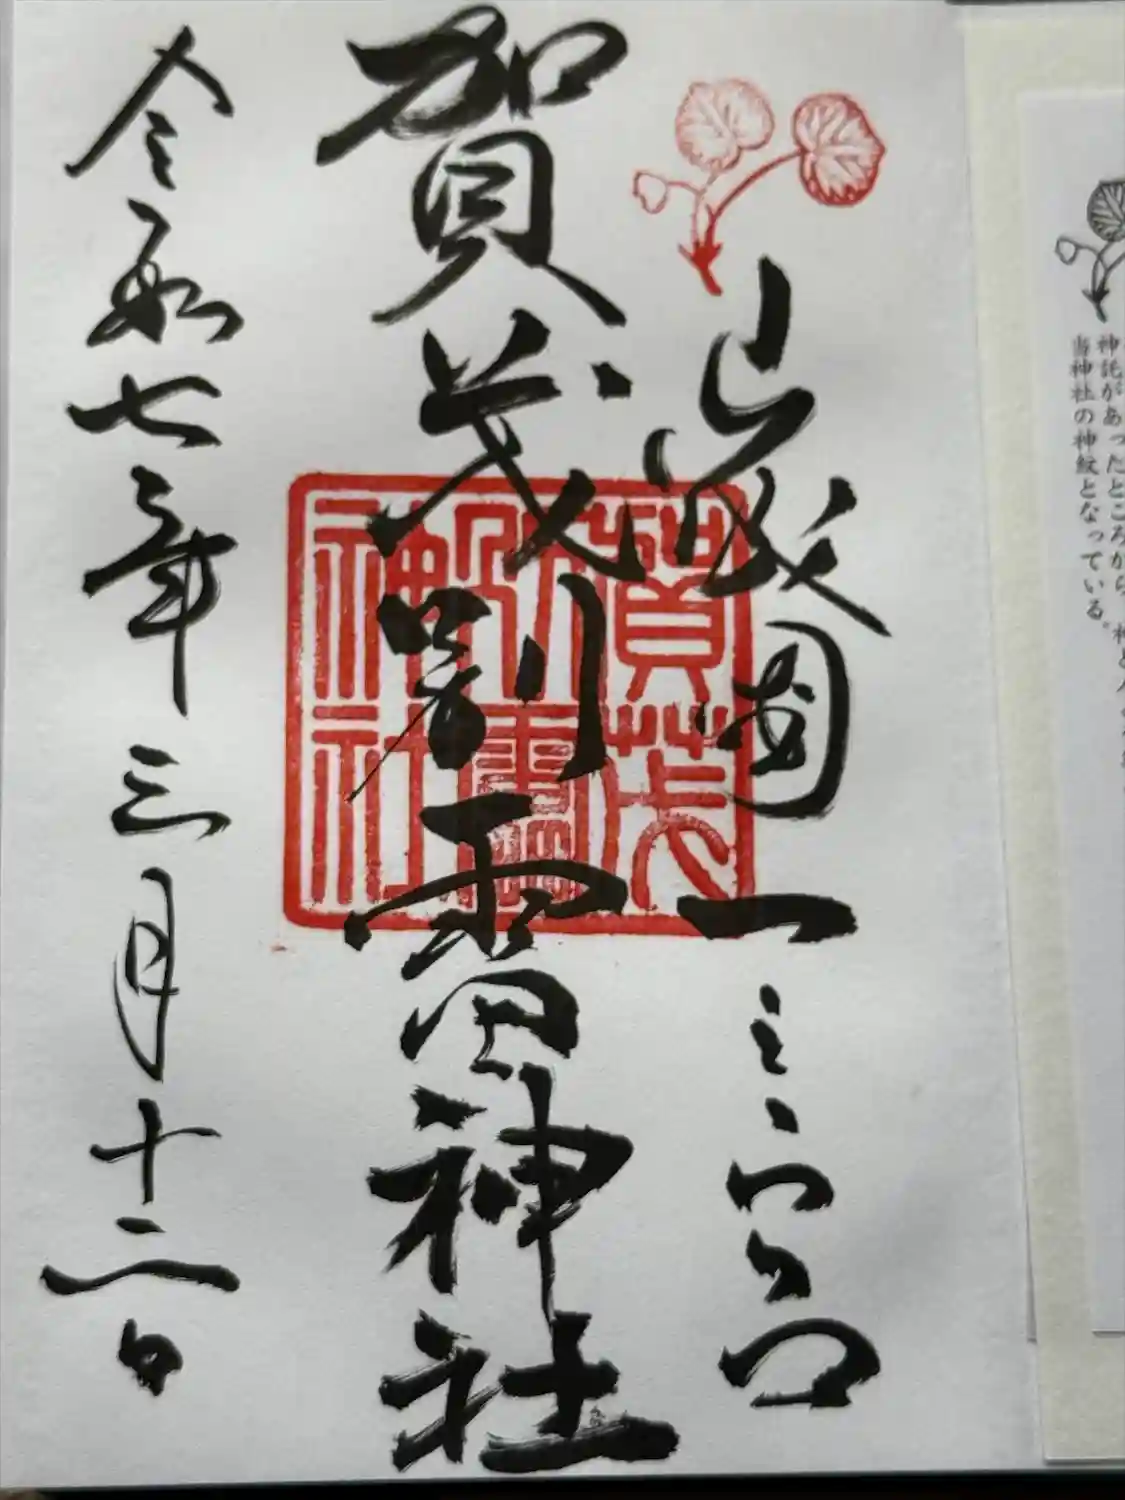 山城国一之宮
賀茂別雷神社
令和七年三月十二日
賀茂
別雷
神社
神託があったところから、神と人
当神社の神紋となっている。